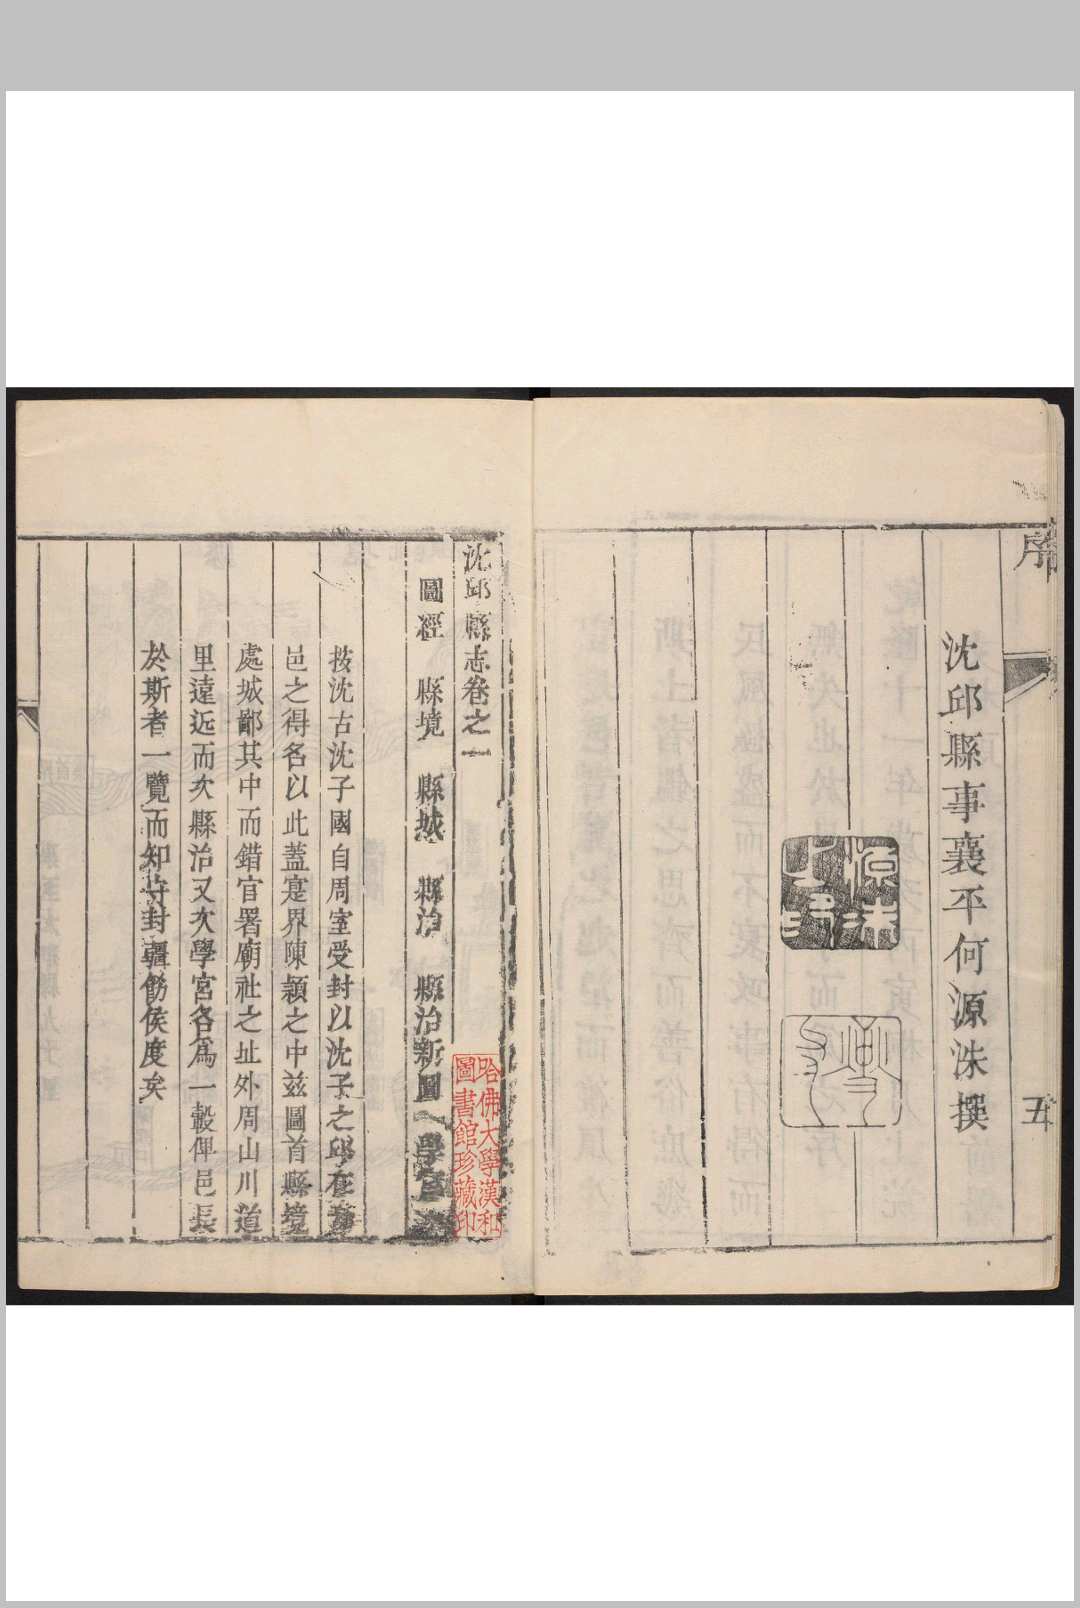 序
五
沈邱縣事襄平何源洙撰
源洙
沈邱縣志卷之一
圖經 縣境 縣城 縣治 縣治新圖 學宮
按沈古沈子國自周室受封以沈子之邱在
邑之得名以此蓋寔界陳潁之中兹圖首縣境
處城鄙其中而錯官署廟社之址外周山川道
里遠近而次縣治又次學宮各爲一毂俾邑長
於斯者一覽而知守封疆飭侯度矣
哈佛大學漢和
圖書館珍藏印